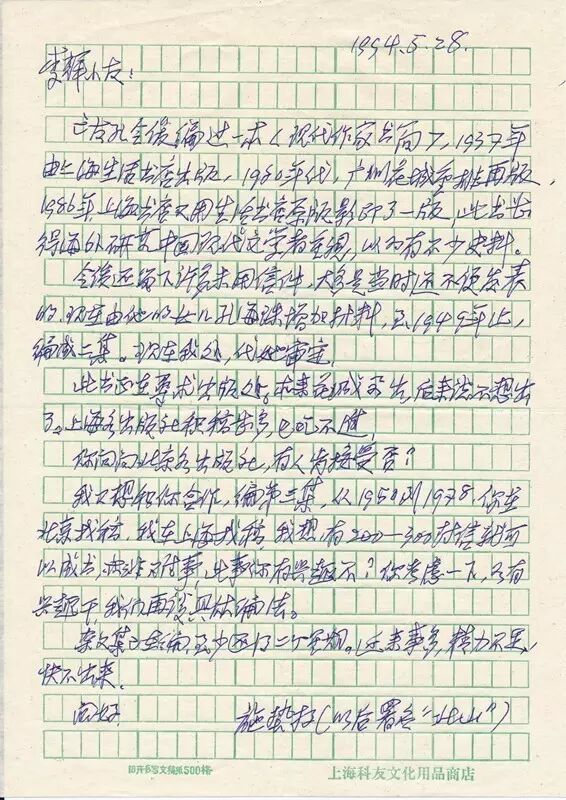 1994.5.28.
李辉小友：
亡友孔令俊编过一本《现代作家书简》，1937年
由上海生活书店出版，1980年代，广州花城重排再版，
1986年上海书店又用生活书店原版影印了一版，此书
得海外研究中国现代文学者重视，以为有不少史料。
令俊还留下许多未用信件，大多是当时还不便发表
的，现在由他的女儿孔海珠增加材料，至1949年止，
编成二集。现在我处，代她审定。
此书正在寻求出版处。本来花城承出，后来说不想出
了。上海各出版社积稿甚多，也吃不进，
你问问北京各出版社，有人肯接受否？
我又想和你合作，编第三集，从1950到1978.你在
北京找稿，我在上海找稿，我想有200—300封信就可
以成书，也非难事，此事你有兴趣不？你考虑一下，如有
兴趣干，我们再谈具体编法。
杂文集正在编，至少还得二个星期。近来事多，精力不足，
快不出来。
问好
施蛰存（以后署名“北山”）
16开书写文稿纸500格
上海科友文化用品商店